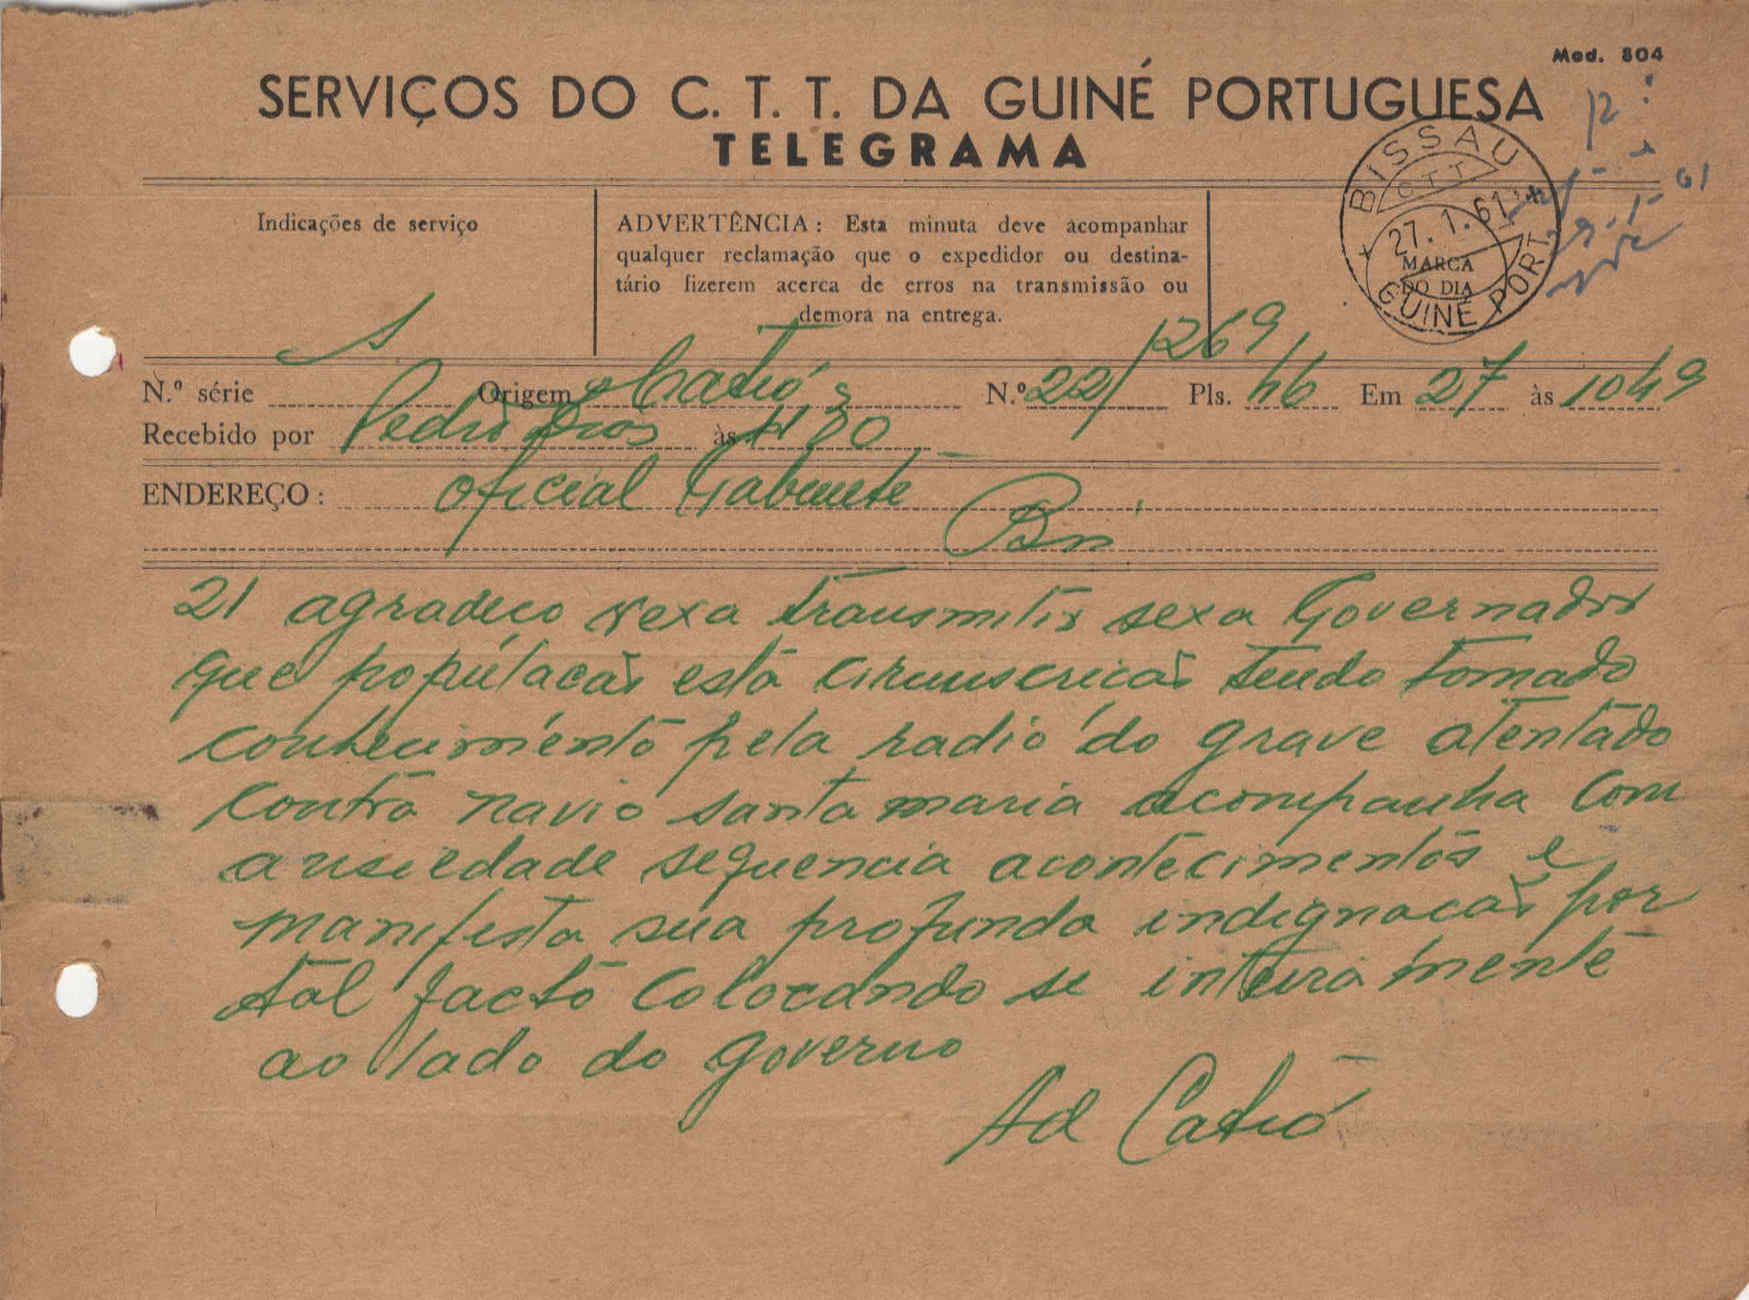 Mod. 804
SERVIÇOS DO C. T. T. DA GUINÉ PORTUGUESA
TELEGRAMA
BISSAU
C T T
27. 1. 61
MARCA
DO DIA
GUINÉ PORT.
Indicações de serviço
ADVERTÊNCIA : Esta minuta deve acompanhar
qualquer reclamação que o expedidor ou destina-
tário fizerem acerca de erros na transmissão ou
demora na entrega.
S
1269
N.º série Origem Catió N.º 22/ Pls. 46 Em 27 às 1049
Recebido por Pedro Dias às
ENDEREÇO : Oficial Gabinete
Bn
21 agradeco vexa transmitir sexa Governador
que populacao esta circunscricao tendo tomado
conhecimento pela radio do grave atentado
contra navio santa maria acompanha com
ansiedade sequencia acontecimentos e
manifesta sua profunda indignacao por
tal facto colocando se inteiramente
ao lado do governo
Ad Catió